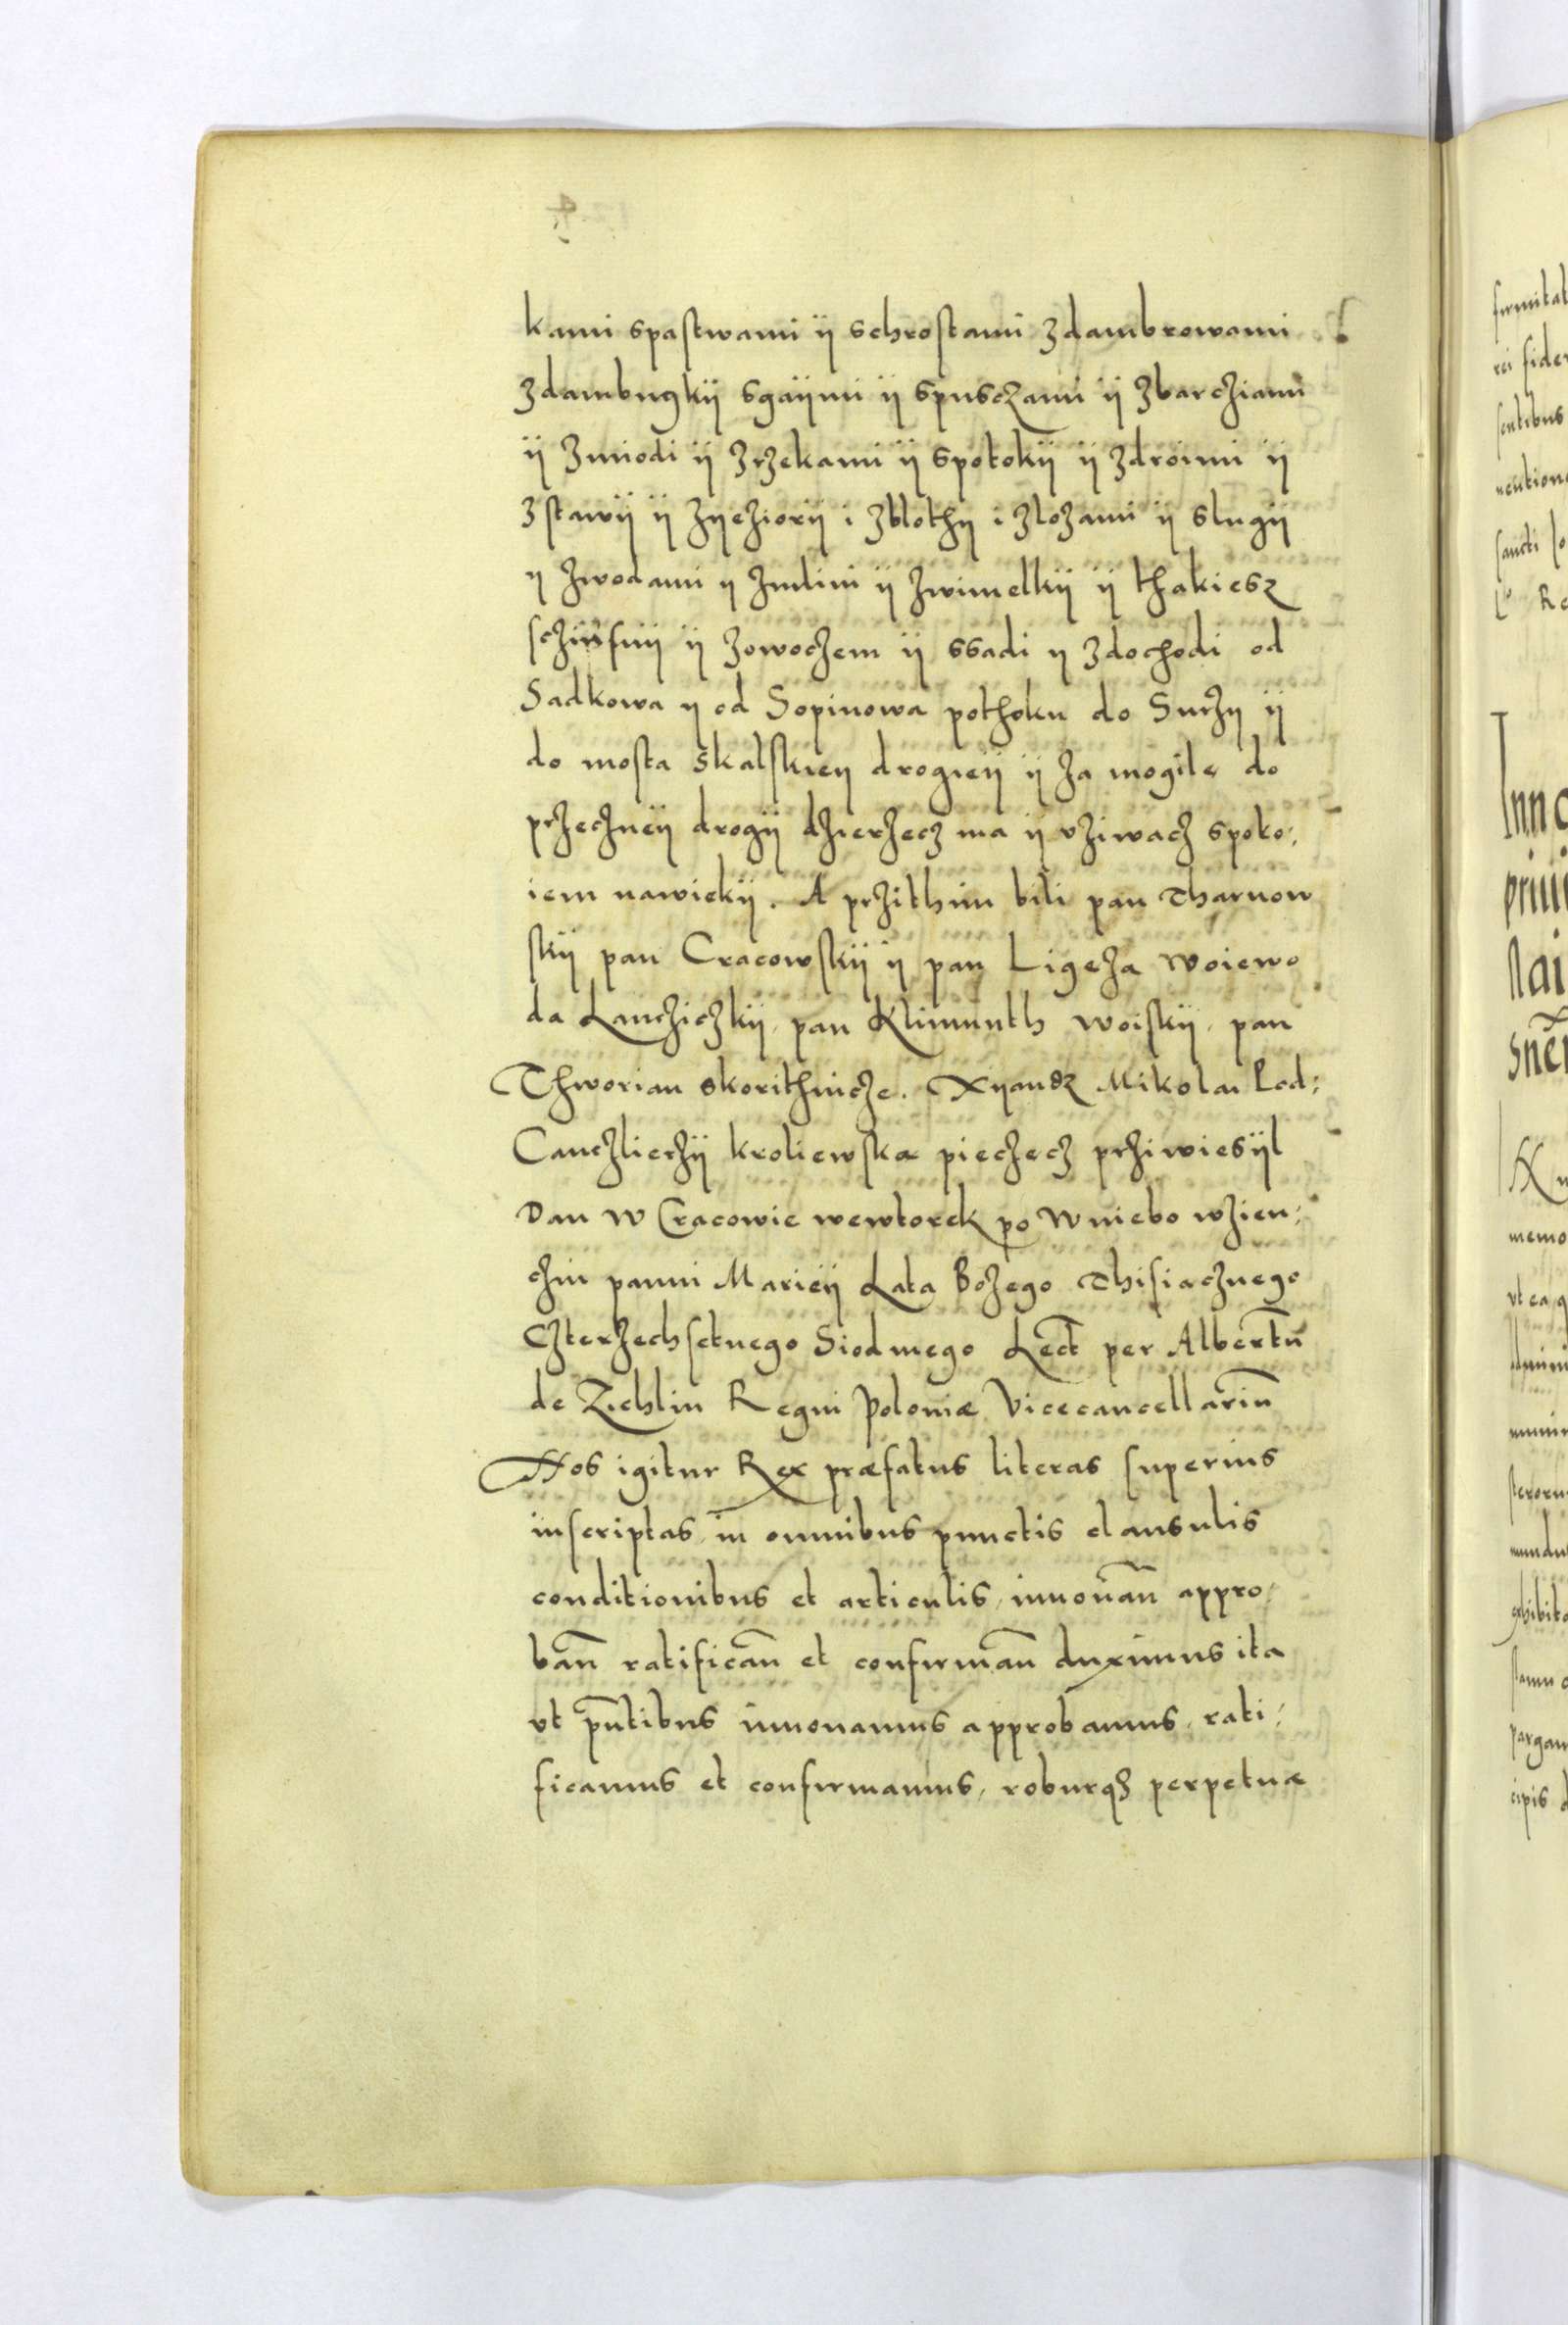 kami spastwami ÿ schrostami zdambrowami
zdambnÿkÿ sgaÿmi ÿ spusczami ÿ zbarcziami
ÿ zmiodi ÿ zrzekami ÿ spotokÿ ÿ zdroimi ÿ
zstawÿ ÿ zÿeziorÿ i zblothÿ i zlozami ÿ slugÿ
y zwodami y zmlini ÿ zwimelkÿ ÿ thakiesz
ÿ zowoczem ÿ ssadi y zdochodi od
Sadkowa y od Sopinowa pothoku do Surzy ÿ
do mosta skalskiey drogieÿ ÿ za mogile do
przeczneÿ drogÿ dzierzecz ma ÿ vziwacz spoko:
iem nawiekÿ. A przithim bili pan Tharnow
skÿ pan Cracowskÿ ÿ pan Ligeza woiewo
da Lancziczkÿ, pan Klimunth woiskÿ, pan
Thworian skorithnicze. Xyandz Mikolai Pod:
Canczlierzÿ kroliewska pieczecz prziwiesÿl
Dan w Cracowie wewtorek po wniebo wzien:
czin panni Marieÿ Lata Bozego Thisiacznego
Czterzechsetnego Siodmego Lect per Albertū
de Zichlin Regni Poloniæ Vicecancellariū
Nos igitur Rex præfatus literas superius
inscriptas, in omnibus punctis clausulis
conditionibus et articulis, innovan̄ appro:
ban̄ ratifican̄ et confirman̄ duximus ita
vt pn̄tibus innovamus approbamus, rati:
ficamus et confirmamus, roburqȝ perpetuæ